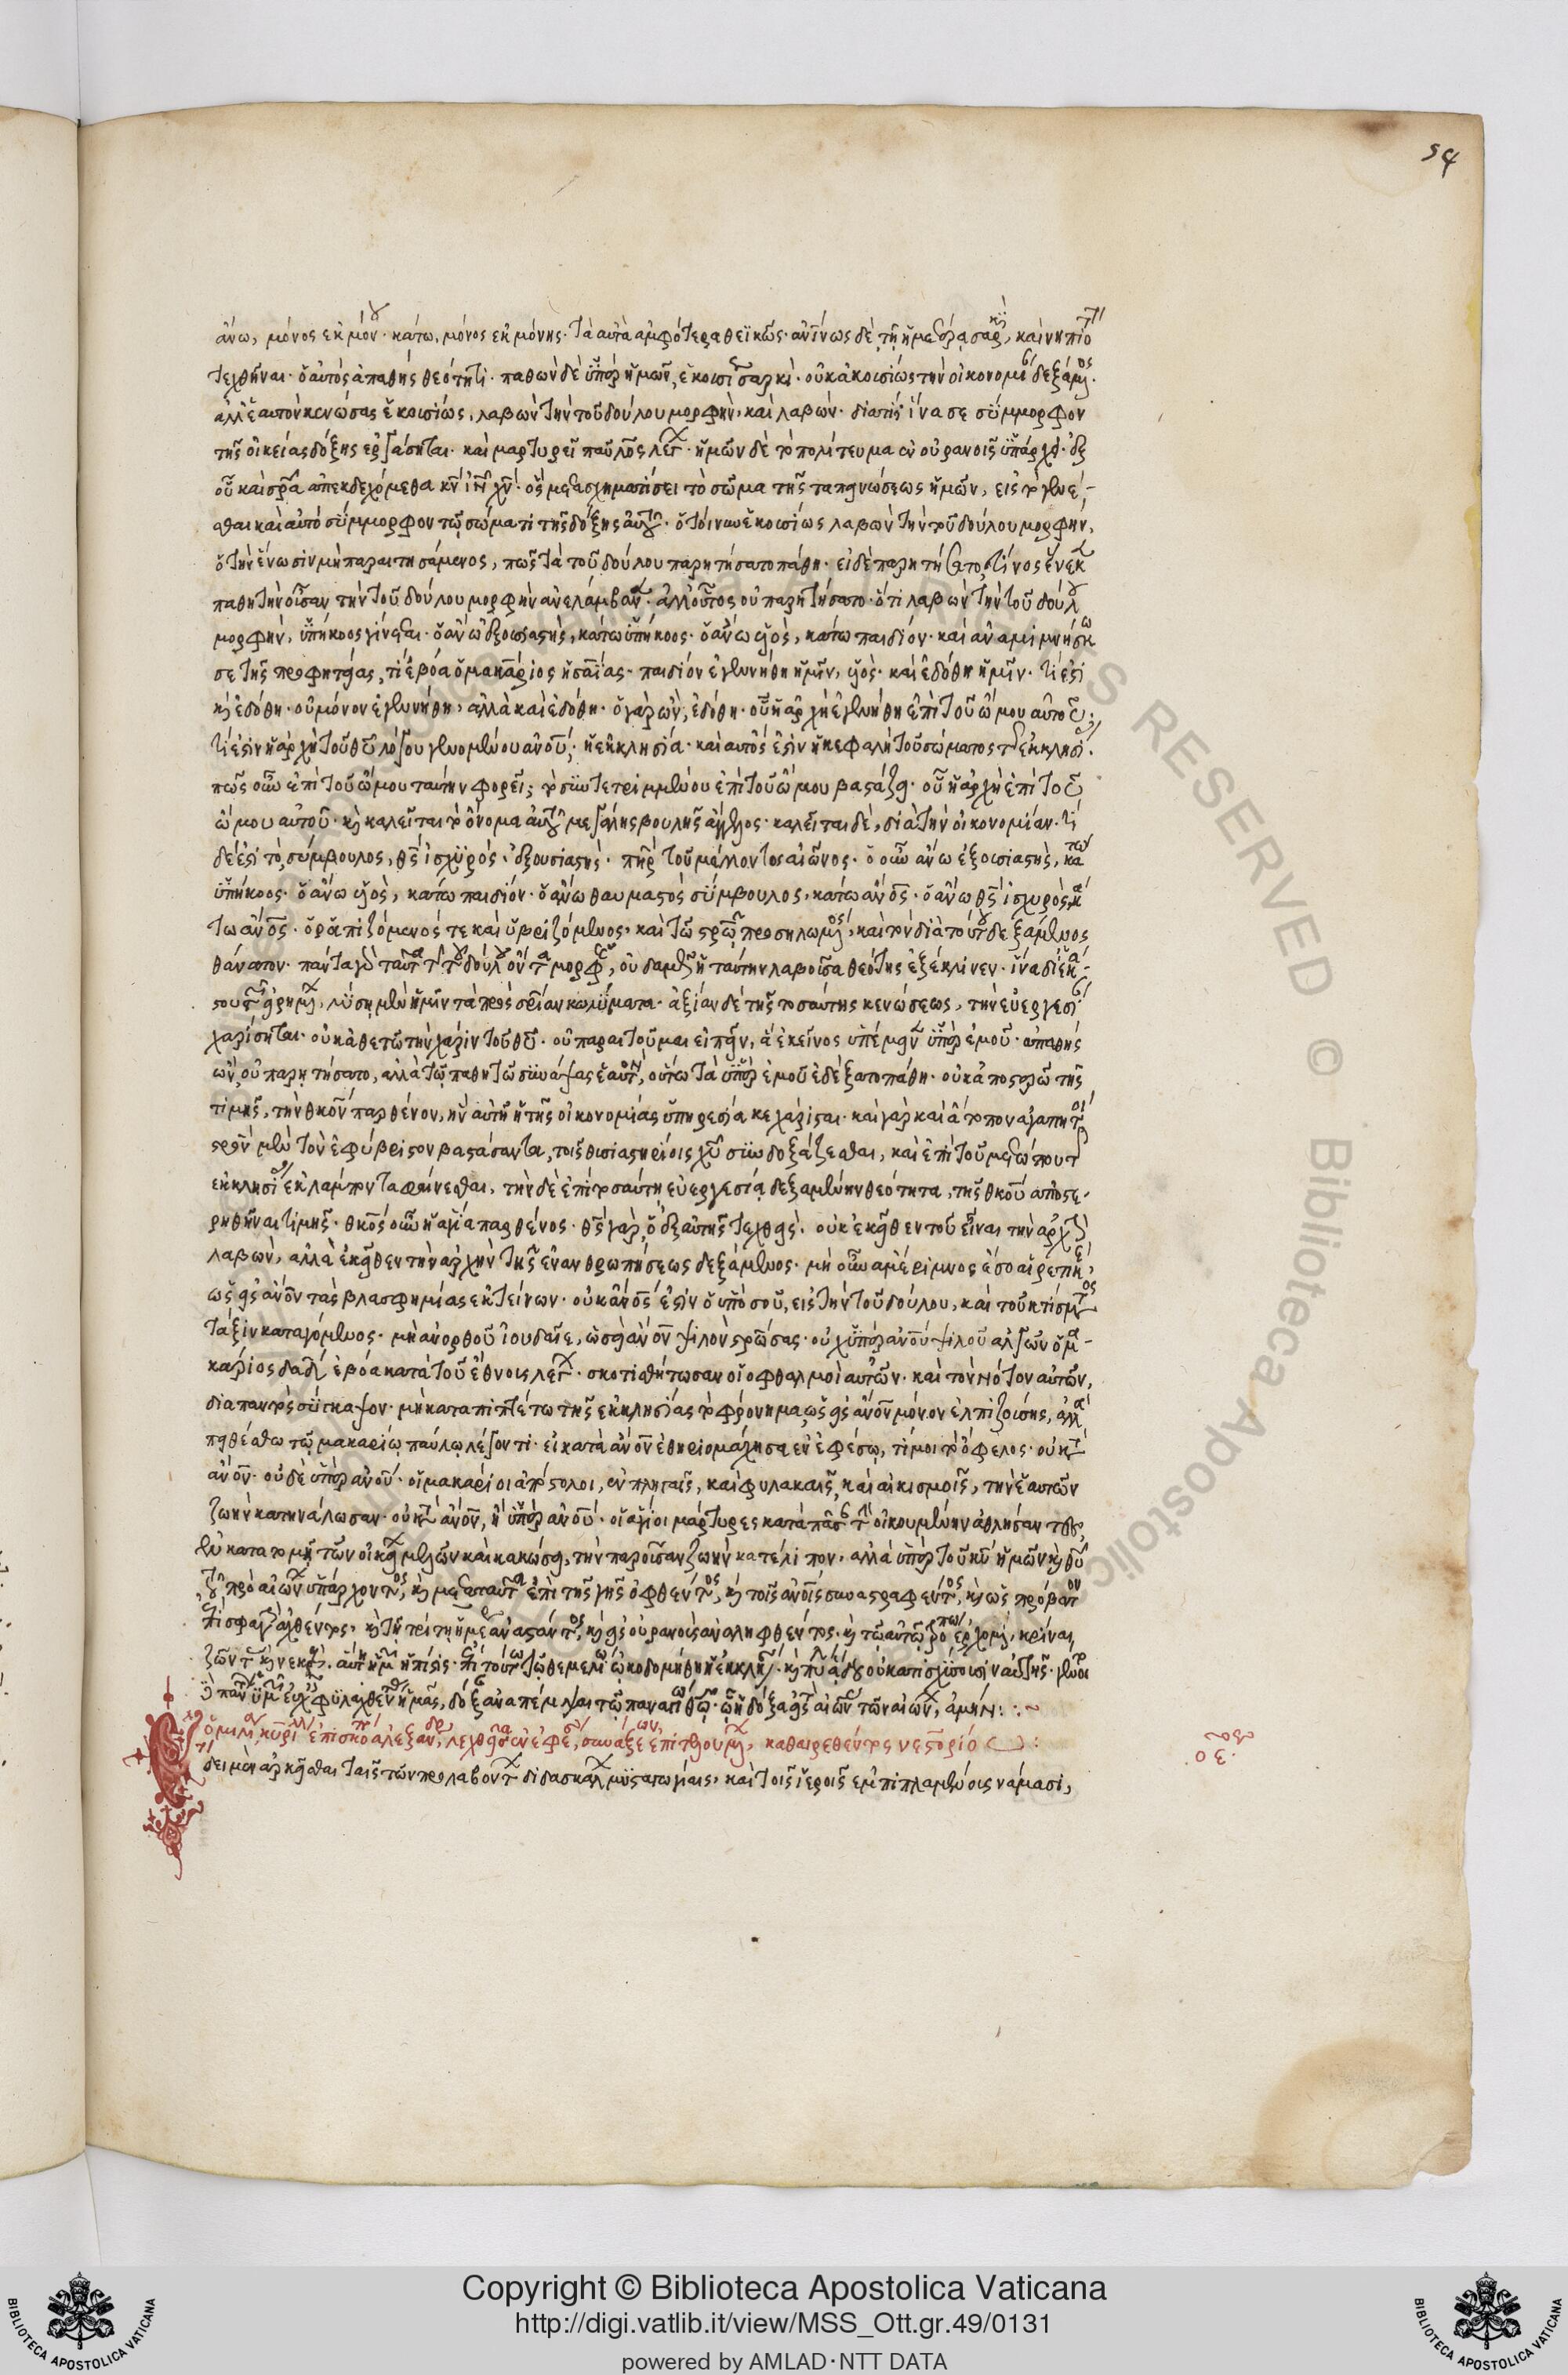 54
ἄνω, μόνος ἐκ μόνου· κάτω, μόνος ἐκ μόνης· τὰ αὐτὰ ἀμφότερα θεϊκῶς· ἀνίνως δὲ, τῇ ἡμετέρᾳ σαρκὶ, καὶ νηπίο
τεχθῆναι· ὁ αὐτὸς ἀπαθὴς θεότητι· παθὼν δὲ ὑπὲρ ἡμῶν, ἑκουσίως σαρκὶ· οὐκ ἀκουσίως τὴν οἰκονομίαν δεξάμενος·
ἀλλ' ἑαυτὸν κενώσας ἑκουσίως, λαβὼν τὴν τοῦ δούλου μορφὴν· καὶ λαβὼν· διατί; ἵνα σε σύμμορφον
τῆς οἰκείας δόξης ἐργάσηται· καὶ μαρτυρεῖ παῦλος λέγων· ἡμῶν δὲ τὸ πολίτευμα ἐν οὐρανοῖς ὑπάρχει· ἐξ
οὗ καὶ σρα ἀπεκδεχόμεθα κν ιν χν· ὃς μετασχηματίσει τὸ σῶμα τῆς ταπεινώσεως ἡμῶν, εἰς τὸ γενέ-
σθαι καὶ αὐτὸ σύμμορφον τῷ σώματι τῆς δόξης αὐτοῦ· ὁ τοίνυν ἑκουσίως λαβὼν τὴν τοῦ δούλου μορφὴν,
ὁ τὴν ἕνωσιν μὴ παραιτησάμενος, πῶς τὰ τοῦ δούλου παρῃτήσατο πάθη· εἰ δὲ παρῃτήσατο, τίνος ἕνεκα
παθητὴν οὖσαν τὴν τοῦ δούλου μορφὴν ἀνελάμβανεν· ἀλλ' οὗτος οὐ παρῃτήσατο· ὅτι λαβὼν τὴν τοῦ δούλου
μορφὴν, ὑπήκοος γίνεται· ὁ ἄνω ἐξουσιαστὴς, κάτω ὑπήκοος· ὁ ἄνω υἱὸς, κάτω παιδίον· καὶ ἀναμιμνήσκω
σε τῆς προφητείας, τί ἐβόα ὁ μακάριος ἡσαΐας· παιδίον ἐγεννήθη ἡμῖν, υἱὸς· καὶ ἐδόθη ἡμῖν· τί ἐστὶ
καὶ ἐδόθη· οὐ μόνον ἐγεννήθη, ἀλλὰ καὶ ἐδόθη· ὁ γὰρ ὢν, ἐδόθη· οὗ ἡ ἀρχὴ ἐγενήθη ἐπὶ τοῦ ὤμου αὐτοῦ·
τί ἐστιν ἡ ἀρχὴ τοῦ θυ λόγου γενομένου ἀνου; ἡ ἐκκλησία· καὶ αὐτὸς ἐστὶν ἡ κεφαλὴ τοῦ σώματος τῆς ἐκκλησίας·
πῶς οὖν ἐπὶ τοῦ ὤμου ταύτην φορεῖ; τὸ συντετριμμένον ἐπὶ τοῦ ὤμου βαστάζει· οὗ ἡ ἀρχὴ ἐπὶ τοῦ
ὤμου αὐτοῦ· καὶ καλεῖται τὸ ὄνομα αὐτοῦ μεγάλης βουλῆς ἄγγελος· καλεῖται δὲ, διὰ τὴν οἰκονομίαν· τί
δέ ἐστι τὸ, σύμβουλος, θς ἰσχυρὸς· ἐξουσιαστής· πηρ τοῦ μέλλοντος αἰῶνος· ὁ οὖν ἄνω ἐξουσιαστὴς, κάτω
ὑπήκοος· ὁ ἄνω υἱὸς, κάτω παιδίον· ὁ ἄνω θαυμαστὸς σύμβουλος, κάτω ἀνος· ὁ ἄνω θς ἰσχυρὸς, κά
τω ἀνος· ὁ ῥαπιζόμενός τε καὶ ὑβριζόμενος, καὶ τῷ σρῷ προσηλωμένος, καὶ τὸν διὰ τούτου δεξάμενος
θάνατον· πάντα γὰρ ταῦτα τὰ τοῦ δούλου ὄντα μορφῆς, οὐδαμῶς ἡ ταύτην λαβοῦσα θεότης ἐξέκλινεν· ἵνα δι' ἑκά-
στου τῶν εἰρημένων, λύσῃ μὲν ἡμῖν τὰ πρὸς σρίαν κωλύματα· ἀξίαν δὲ τῆς τοσαύτης κενώσεως, τὴν εὐεργεσίαν
χαρίσηται· οὐκ ἀθετῶ τὴν χάριν τοῦ θυ· οὐ παραιτοῦμαι εἰπεῖν, ἃ ἐκεῖνος ὑπέμεινεν ὑπὲρ ἐμοῦ· ἀπαθὴς
ὢν, οὐ παρῃτήσατο, ἀλλὰ τῷ παθητῷ συνάψας ἑαυτὸν, οὕτω τὰ ὑπὲρ ἐμοῦ ἐδέξατο πάθη· οὐκ ἀποστερῶ τῆς
τιμῆς, τὴν θκον παρθένον, ἣν αὐτῇ ἡ τῆς οἰκονομίας ὑπηρεσία κεχάρισται· καὶ γὰρ καὶ ἄτοπον ἀγαπητοὶ
σρὸν μὲν τὸν ἐφύβριστον βαστάσαντα, τοῖς θυσιαστηρίοις χυ συνδοξάζεσθαι, καὶ ἐπὶ τοῦ μετώπου τῆς
ἐκκλησίας ἐκλάμποντα φαίνεσθαι, τὴν δὲ ἐπὶ τοσαύτῃ εὐεργεσίᾳ δεξαμένην θεότητα, τῆς θκου ἀποστε-
ρηθῆναι τιμῆς· θκος οὖν ἡ ἁγία παρθένος· θς γὰρ, ὁ ἐξ αὐτῆς τεχθεὶς· οὐκ ἐκεῖθεν τοῦ εἶναι τὴν ἀρχὴν
λαβὼν, ἀλλὰ ἐκεῖθεν τὴν ἀρχὴν τῆς ἐνανθρωπήσεως δεξάμενος· μὴ οὖν ἀμέριμνος ἔσο αἱρετικέ,
ὡς εἰς ἀνον τὰς βλασφημίας ἐκτείνων· οὐκ ἀνος ἐστὶν ὁ ὑπὸ σοῦ, εἰς τὴν τοῦ δούλου, καὶ τοῦ κτίσματος
τάξιν καταγόμενος· μὴ ἀνορθοῦ ἰουδαῖε, ὡσεὶ ἀνον ψιλὸν σρώσας· οὐχ ὑπὲρ ἀνου ψιλοῦ ἀλγῶν ὁ μα-
κάριος δαδ ἐβόα κατὰ τοῦ ἔθνους λέγων· σκοτισθήτωσαν οἱ ὀφθαλμοὶ αὐτῶν· καὶ τὸν νότον αὐτῶν,
διαπαντὸς σύγκαψον· μὴ καταπιπτέτω τῆς ἐκκλησίας τὸ φρόνημα, ὡς εἰς ἀνον μόνον ἐλπιζούσης, ἀλλὰ
πειθέσθω τῷ μακαρίῳ παύλῳ λέγοντι· εἰ κατὰ ἀνον ἐθηριομάχησα ἐν ἐφέσῳ, τί μοι τὸ ὄφελος· οὐ κατὰ
ἀνον· οὐδὲ ὑπὲρ ἀνου· οἱ μακάριοι ἀπόστολοι, ἐν πληγαῖς, καὶ φυλακαῖς, καὶ αἰκισμοῖς, τὴν ἑαυτῶν
ζωὴν κατηνάλωσαν· οὐ κατὰ ἀνον, ἢ ὑπὲρ ἀνου· οἱ ἅγιοι μάρτυρες κατὰ πᾶσαν τὴν οἰκουμένην ἀθλήσαντες,
ἐν κατατομῇ τῶν οἰκείων μελῶν καὶ κακώσει, τὴν παροῦσαν ζωὴν κατέλιπον, ἀλλὰ ὑπὲρ τοῦ κυ ἡμῶν καὶ θυ
τοῦ πρὸ αἰώνων ὑπάρχοντος, καὶ μετὰ ταῦτα ἐπὶ τῆς γῆς ὀφθέντος, καὶ τοῖς ἀνοις συναστραφέντος, καὶ ὡς πρόβατον
ἐπὶ σφαγὴν ἀχθέντος, καὶ τῇ τρίτῃ ἡμέρᾳ ἀναστάντος, καὶ εἰς οὐρανοὺς ἀναληφθέντος· καὶ τῷ αὐτῷ τρόπῳ ἐρχομένου, κρῖναι
ζῶντας καὶ νεκρούς. αὕτη ἡμῖν ἡ πίστις· ἐπὶ τούτῳ τῷ θεμελίῳ ᾠκοδομήθη ἡ ἐκκλησία· καὶ πύλαι ᾅδου οὐ κατισχύσουσιν αὐτῆς· γένοιτο
δὲ πάντας ὑμῶν εὐχαῖς φυλαχθέντας ἡμᾶς, δόξαν ἀναπέμψαι τῷ παναγίῳ θῷ· ᾧ ἡ δόξα εἰς τοὺς αἰῶνας τῶν αἰώνων, ἀμήν:
ὁμιλία κυρίλλου ἐπισκόπου ἀλεξανδρείας, λεχθεῖσα ἐν ἐφέσῳ, συνάξεων ἐπιτελουμένων, καθαιρεθέντος νεστορίου:
ἔδει μὲν ἀρκεῖσθαι ταῖς τῶν προλαβόντων διδασκάλων μυσταγωγίαις, καὶ τοῖς ἱεροῖς ἐμπιπλαμένους νάμασι,
Copyright © Biblioteca Apostolica Vaticana
http://digi.vatlib.it/view/MSS_Ott.gr.49/0131
powered by AMLAD·NTT DATA
BIBLIOTECA APOSTOLICA VATICANA
BIBLIOTECA APOSTOLICA VATICANA